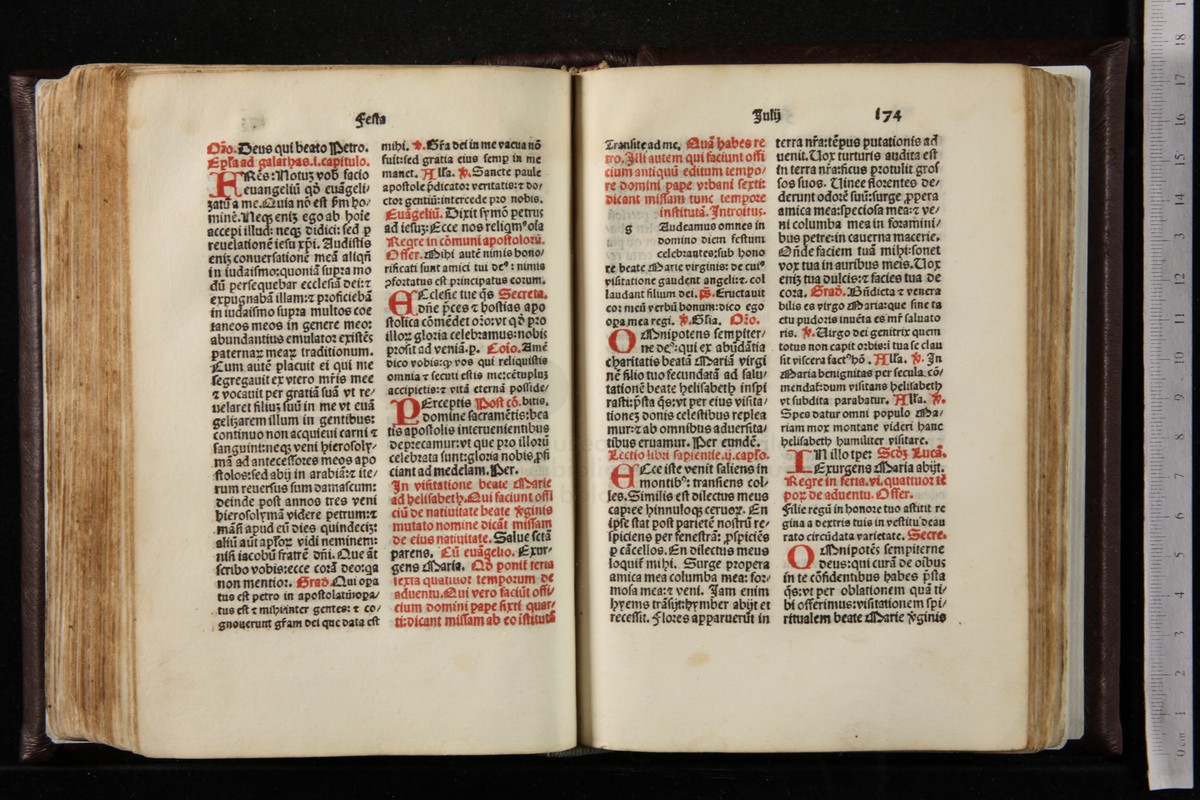 Festa
Oro. Deus qui beato Petro.
Epla ad galathas.i.capitulo.
FRes: Notuz vob facio
euangeliu qd euageli-
zatu a me. Quia no est pm ho-
mine. Neqz eniz ego ab hoie
accepi illud: neqz didici: sed p
reuelatione iesu xpi. Audistis
eniz conuersatione mea aliqn
in iudaismo: quonia supra mo
du persequebar ecclesia dei: ⁊
expugnaba illam: ⁊ proficieba
in iudaismo supra multos coe
taneos meos in genere meo:
abundantius emulator existes
paternar mear traditionum.
Cum aute placuit ei qui me
segregauit ex vtero mris mee
⁊ vocauit per gratia sua vt re-
uelaret filiu suu in me vt eua
gelizarem illum in gentibus:
continuo non acquieui carni ⁊
sanguini: neqz veni hierosoly-
ma ad antecessores meos apo
stolos: sed abij in arabia: ⁊ ite-
rum reuersus sum damascum:
deinde post annos tres veni
hierosolyma videre petrum: ⁊
masi apud eu dies quindeciz:
aliu aut aplor vidi neminem:
nisi iacobu fratre dni. Que at
scribo vobis: ecce cora deo: qa
non mentior. Grad. Qui opa
tus est petro in apostolatu: opa-
tus est ⁊ mihi inter gentes: ⁊ co-
gnouerunt gram dei que data est
mihi. ℣. Gra dei in me vacua no
fuit: sed gratia eius semp in me
manet. Alla. ℣. Sancte paule
apostole pdicator veritatis: ⁊ do-
ctor gentiu: intercede pro nobis.
Euageliu. Dixit symo petrus
ad iesuz: Ecce nos reliqm⁹ oia
Reqre in comuni apostoloru.
Offer. Mihi aute nimis hono-
rificati sunt amici tui de⁹: nimis
pfortatus est principatus eorum.
EClesie tue qs Secreta.
dne pces ⁊ hostias apo
stolica comedet oro: vt qd pro
illor gloria celebramus: nobis
prosit ad venia. p. Coio. Ame
dico vobis: q vos qui reliquistis
omnia ⁊ secuti estis me: cetuplu
accipietis: ⁊ vita eterna posside-
PErceptis Post co. bitis.
domine sacrametis: bea
tis apostolis interuenientibus
deprecamur: vt que pro illoru
celebrata sunt: gloria nobis pfi
ciant ad medelam. Per.
In visitatione beate Marie
ad helisabeth. Qui faciunt offi
ciu de natiuitate beate ℣ginis
mutato nomine dicat missam
de eius natiuitate. Salue scta
parens. Cu euagelio. Exur-
gens Maria. Qd ponit feria
sexta quatuor temporum de
aduentu. Qui vero faciut offi-
cium domini pape sixti quar-
ti: dicant missam ab eo instituta
Julij 174
Transite ad me. Qua habes re
tro. Illi autem qui faciunt offi
cium antiquu editum tempo-
re domini pape vrbani sexti:
dicant missam tunc tempore
instituta. Introitus.
g Audeamus omnes in
domino diem festum
celebrantes: sub hono
re beate Marie virginis: de cui⁹
visitatione gaudent angeli: ⁊ col
laudant filium dei. ps. Eructauit
cor meu verbu bonum: dico ego
opa mea regi. ℣. Glia. Oro.
OMnipotens sempiter-
ne de⁹: qui ex abudatia
charitatis beata Maria virgi
ne filio tuo fecundata ad salu-
tatione beate helisabeth inspi
rasti: psta qs: vt per eius visita-
tionez donis celestibus replea
mur: ⁊ ab omnibus aduersita-
tibus eruamur. Per eunde.
Lectio libri sapientie. ij. caplo.
ECce iste venit saliens in
montib⁹: transiens col-
les. Similis est dilectus meus
capree hinnuloqz ceruor. En
ipse stat post pariete nostru re-
spiciens per fenestra: pspicies
p cacellos. En dilectus meus
loquit mihi. Surge propera
amica mea columba mea: for-
mosa mea: ⁊ veni. Jam enim
hyems trasijt: hymber abijt et
recessit. Flores apparuerut in
terra nra: tepus putationis ad
uenit. Uox turturis audita est
in terra nra: ficus protulit gros
sos suos. Uinee florentes de-
derunt odore suu: surge ppera
amica mea: speciosa mea: ⁊ ve-
ni columba mea in foramini-
bus petre: in cauerna macerie.
Onde faciem tua mihi: sonet
vox tua in auribus meis. Uox
eniz tua dulcis: ⁊ facies tua de
cora. Grad. Bndicta ⁊ venera
bilis es virgo Maria: que sine ta
ctu pudoris inueta es mr saluato
ris. ℣. Uirgo dei genitrix quem
totus non capit orbis: i tua se clau
sit viscera fact⁹ ho. Alla. ℣. In
Maria benignitas per secula co-
mendat: dum visitans helisabeth
vt subdita parabatur. Alla. ℣.
Spes datur omni populo Ma-
riam mox montane videri hanc
helisabeth humiliter visitare.
IN illo tpe: Scdz Luca.
Exurgens Maria abijt.
Reqre in feria. vi. quattuor te
por de aduentu. Offer.
Filie regu in honore tuo astitit re
gina a dextris tuis in vestitu deau
rato circudata varietate. Secre.
OMnipotes sempiterne
deus: qui cura de oibus
in te cofidentibus habes psta
qs: vt per oblationem qua ti-
bi offerimus: visitationem spi-
ritualem beate Marie ℣ginis
0 cm 1 2 3 4 5 6 7 8 9 10 11 12 13 14 15 16 17 18